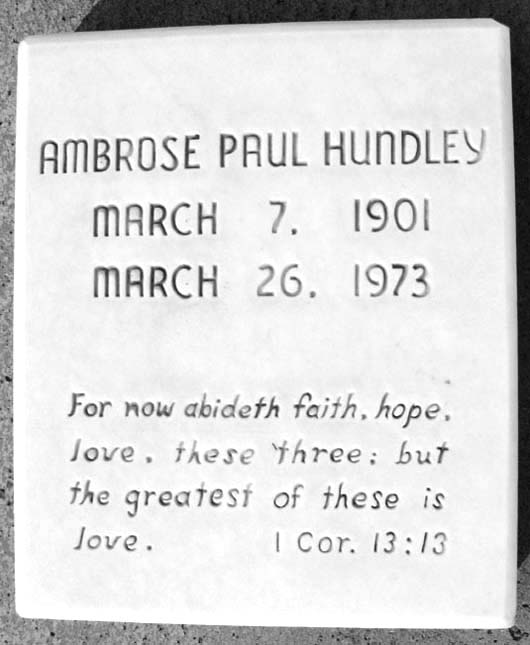 AMBROSE PAUL HUNDLEY
MARCH 7. 1901
MARCH 26. 1973
For now abideth faith, hope,
love, these three; but
the greatest of these is
love. 1 Cor. 13:13